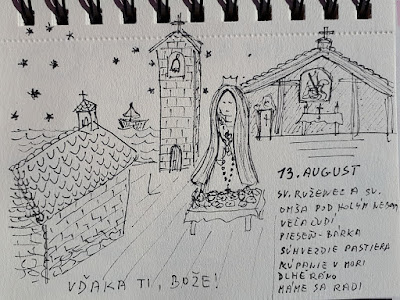 13. AUGUST
SV. RUŽENEC A SV.
OMŠA POD HOLÝM NEBOM
VEĽA ĽUDÍ
PIESEŇ-BÁRKA
SÚHVEZDIE PASTIERA
KÚPANIE V MORI
DLHÉ RÁNO
MÁME SA RADI
VĎAKA TI, BOŽE!